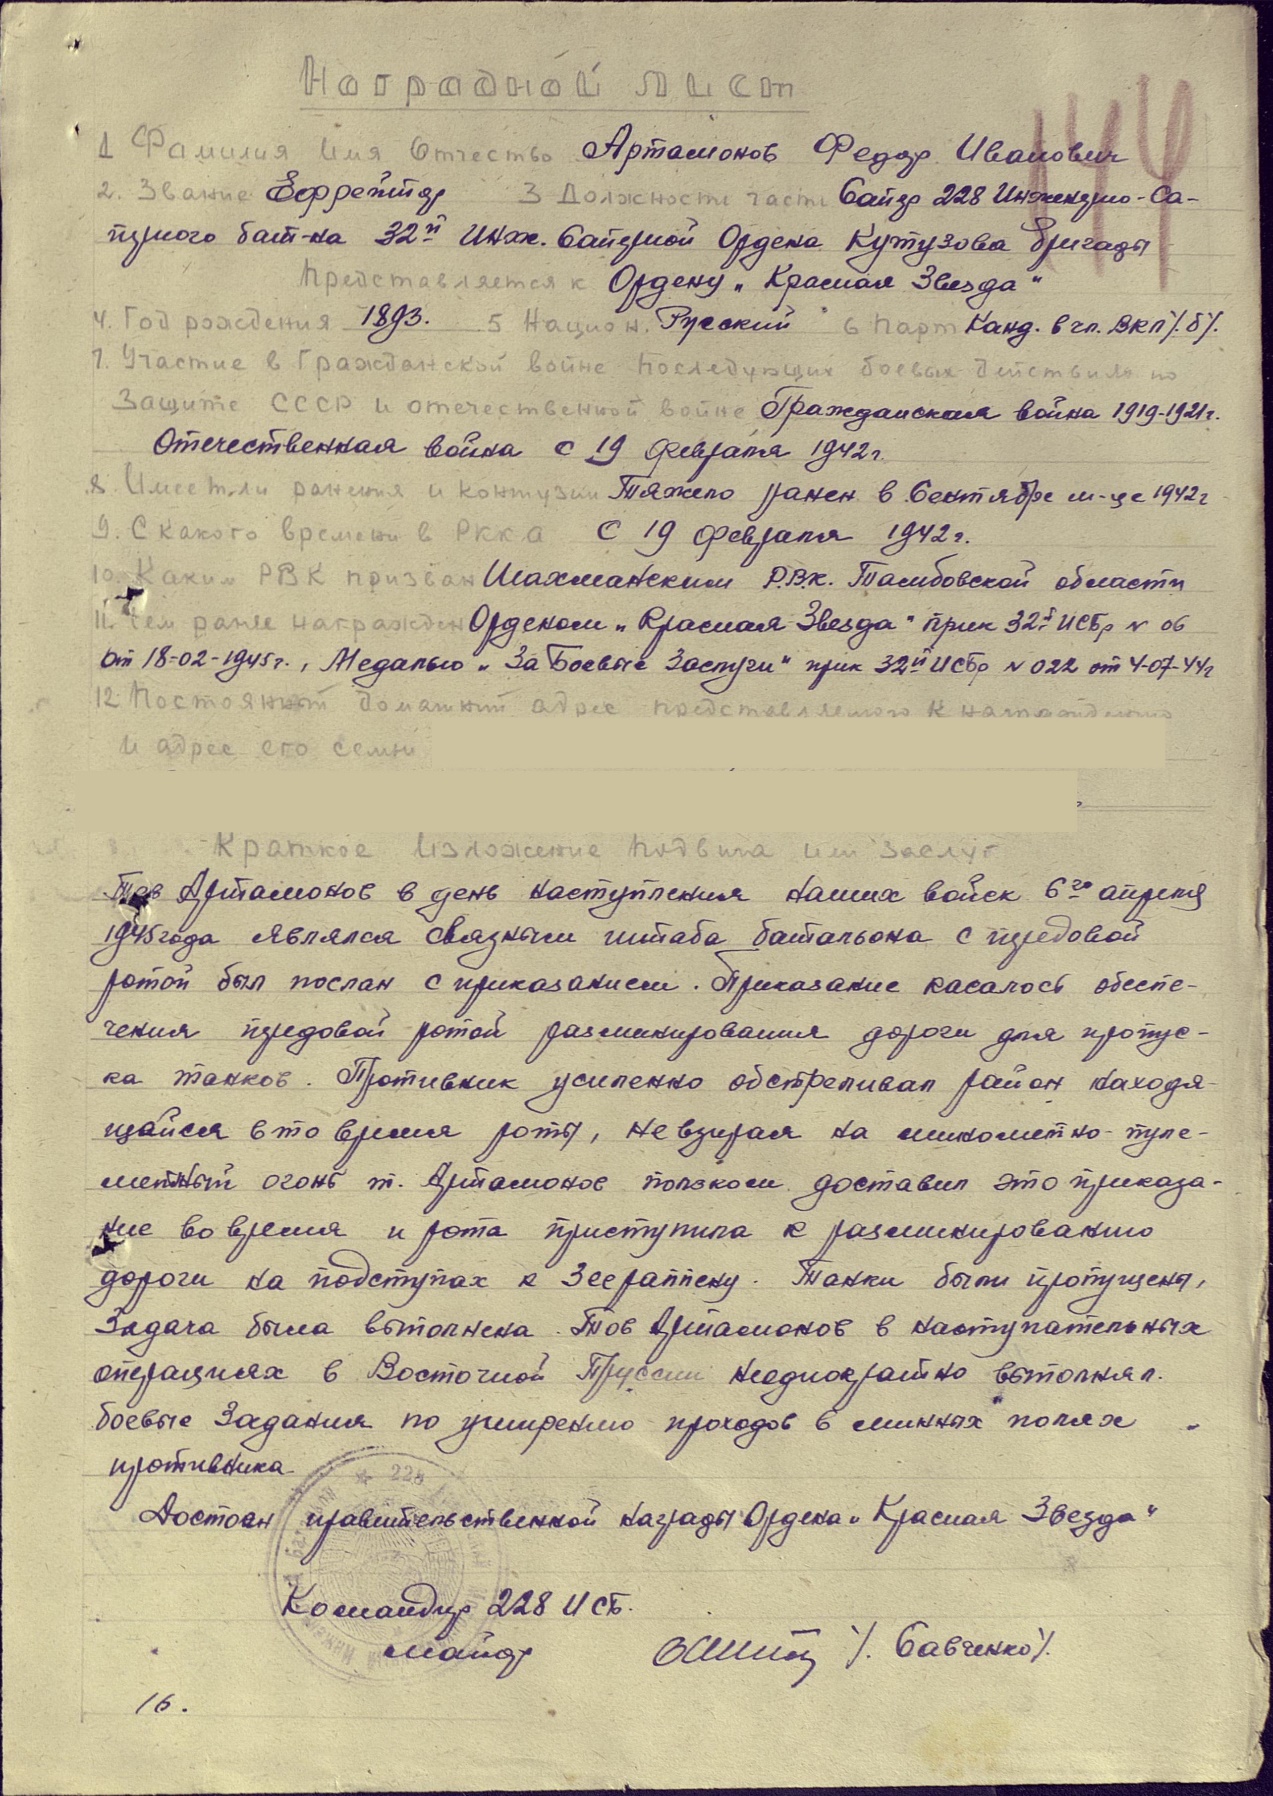 Наградной лист
144
1 Фамилия Имя Отчество Артамонов Федор Иванович
2. Звание Ефрейтор 3 Должность часть Сапер 228 Инженерно-Са-
перного бат-на 32й Инж. Саперной Ордена Кутузова бригады
Представляется к Ордену „Красная Звезда"
4. Год рождения 1893. 5 Национ. Русский 6 Парт Канд. в чл. ВКП/б/.
7. Участие в Гражданской войне последующих боевых действиях по
защите СССР и отечественной войне Гражданская война 1919-1921г.
Отечественная война с 19 февраля 1942г.
8. Имеет ли ранения и контузии Тяжело ранен в Сентябре м-це 1942г
9. С какого времени в РККА с 19 февраля 1942г.
10. Каким РВК призван Шахманским Р.В.К. Тамбовской области
11. Чем ранее награжден Орденом „Красная Звезда" прик 32й ИСБр № 06
от 18-02-1945г., Медалью „За Боевые Заслуги" прик 32й ИСБр № 022 от 4-07-44г
12 Постоянный домашний адрес представляемого к награждению
и адрес его семьи
Краткое изложение подвига или заслуг
Тов Артамонов в день наступления наших войск 6го апреля
1945года являлся связным штаба батальона с передовой
ротой был послан с приказанием. Приказание касалось обеспе-
чения передовой ротой разминирования дороги для пропус-
ка танков. Противник усиленно обстреливал район находя-
щайся в то время роты, не взирая на минометно-пуле-
метный огонь т. Артамонов ползком доставил это приказа-
ние во время и рота приступила к разминированию
дороги на подступах к Зеераппену. Танки были пропущены,
Задача была выполнена. Тов Артамонов в наступательных
операциях в Восточной Пруссии неоднократно выполнял.
боевые Задания по уширению проходов в минных полях
противника
Достоен правительственной награды Ордена „Красная Звезда"
Командир 228 ИСБ.
майор /. Савченко/.
16.